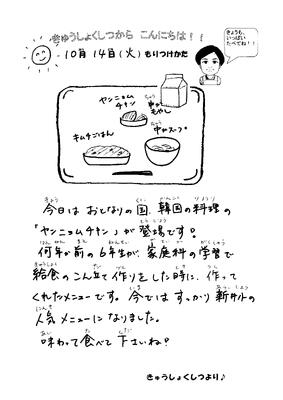 きゅうしょくしつから こんにちは！！
きょうも、
いっぱい
たべてね！！
10月 14日(火) もりつけかた
ヤンニョム
チキン
中かもやし
キムチごはん
中かスープ
今日は おとなりの国、韓国の料理の
「ヤンニョムチキン」が登場です。
何年か前の6年生が、家庭科の学習で
給食のこん立て作りをした時に、作って
くれたメニューです。今ではすっかり新井小の
人気メニューになりました。
味わって食べて下さいね？
きゅうしょくしつより♪